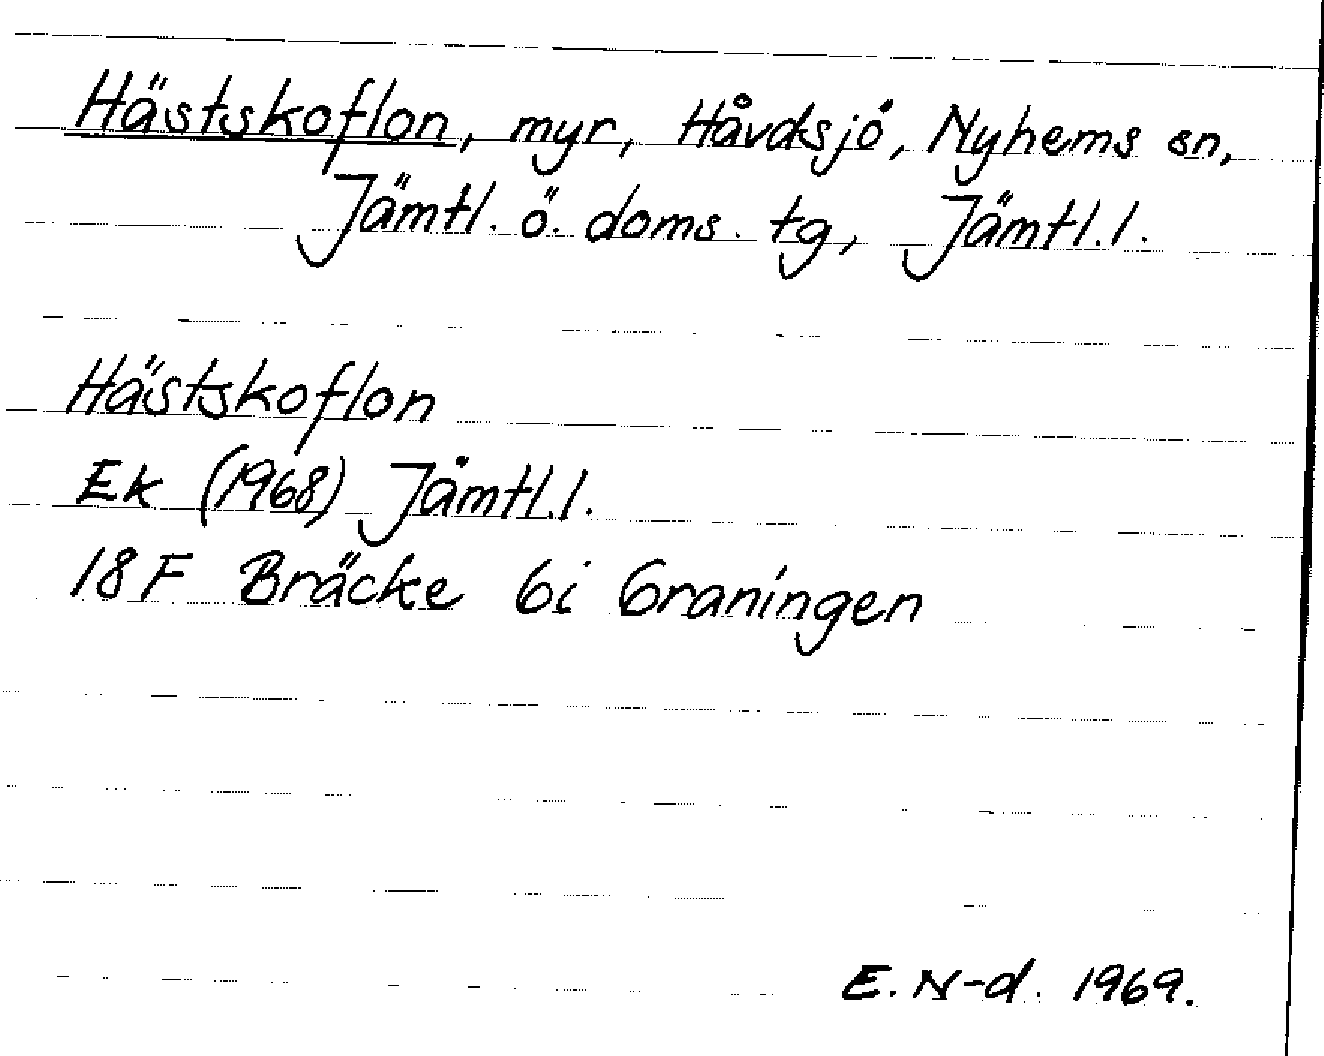 Hästskoflon, myr, Håvdsjö, Nyhems sn,
Jämtl. ö. doms. tg, Jämtl.l.
Hästskoflon
Ek (1968) Jämtl.l.
18F Bräcke 6i Graningen
E. N-d. 1969.